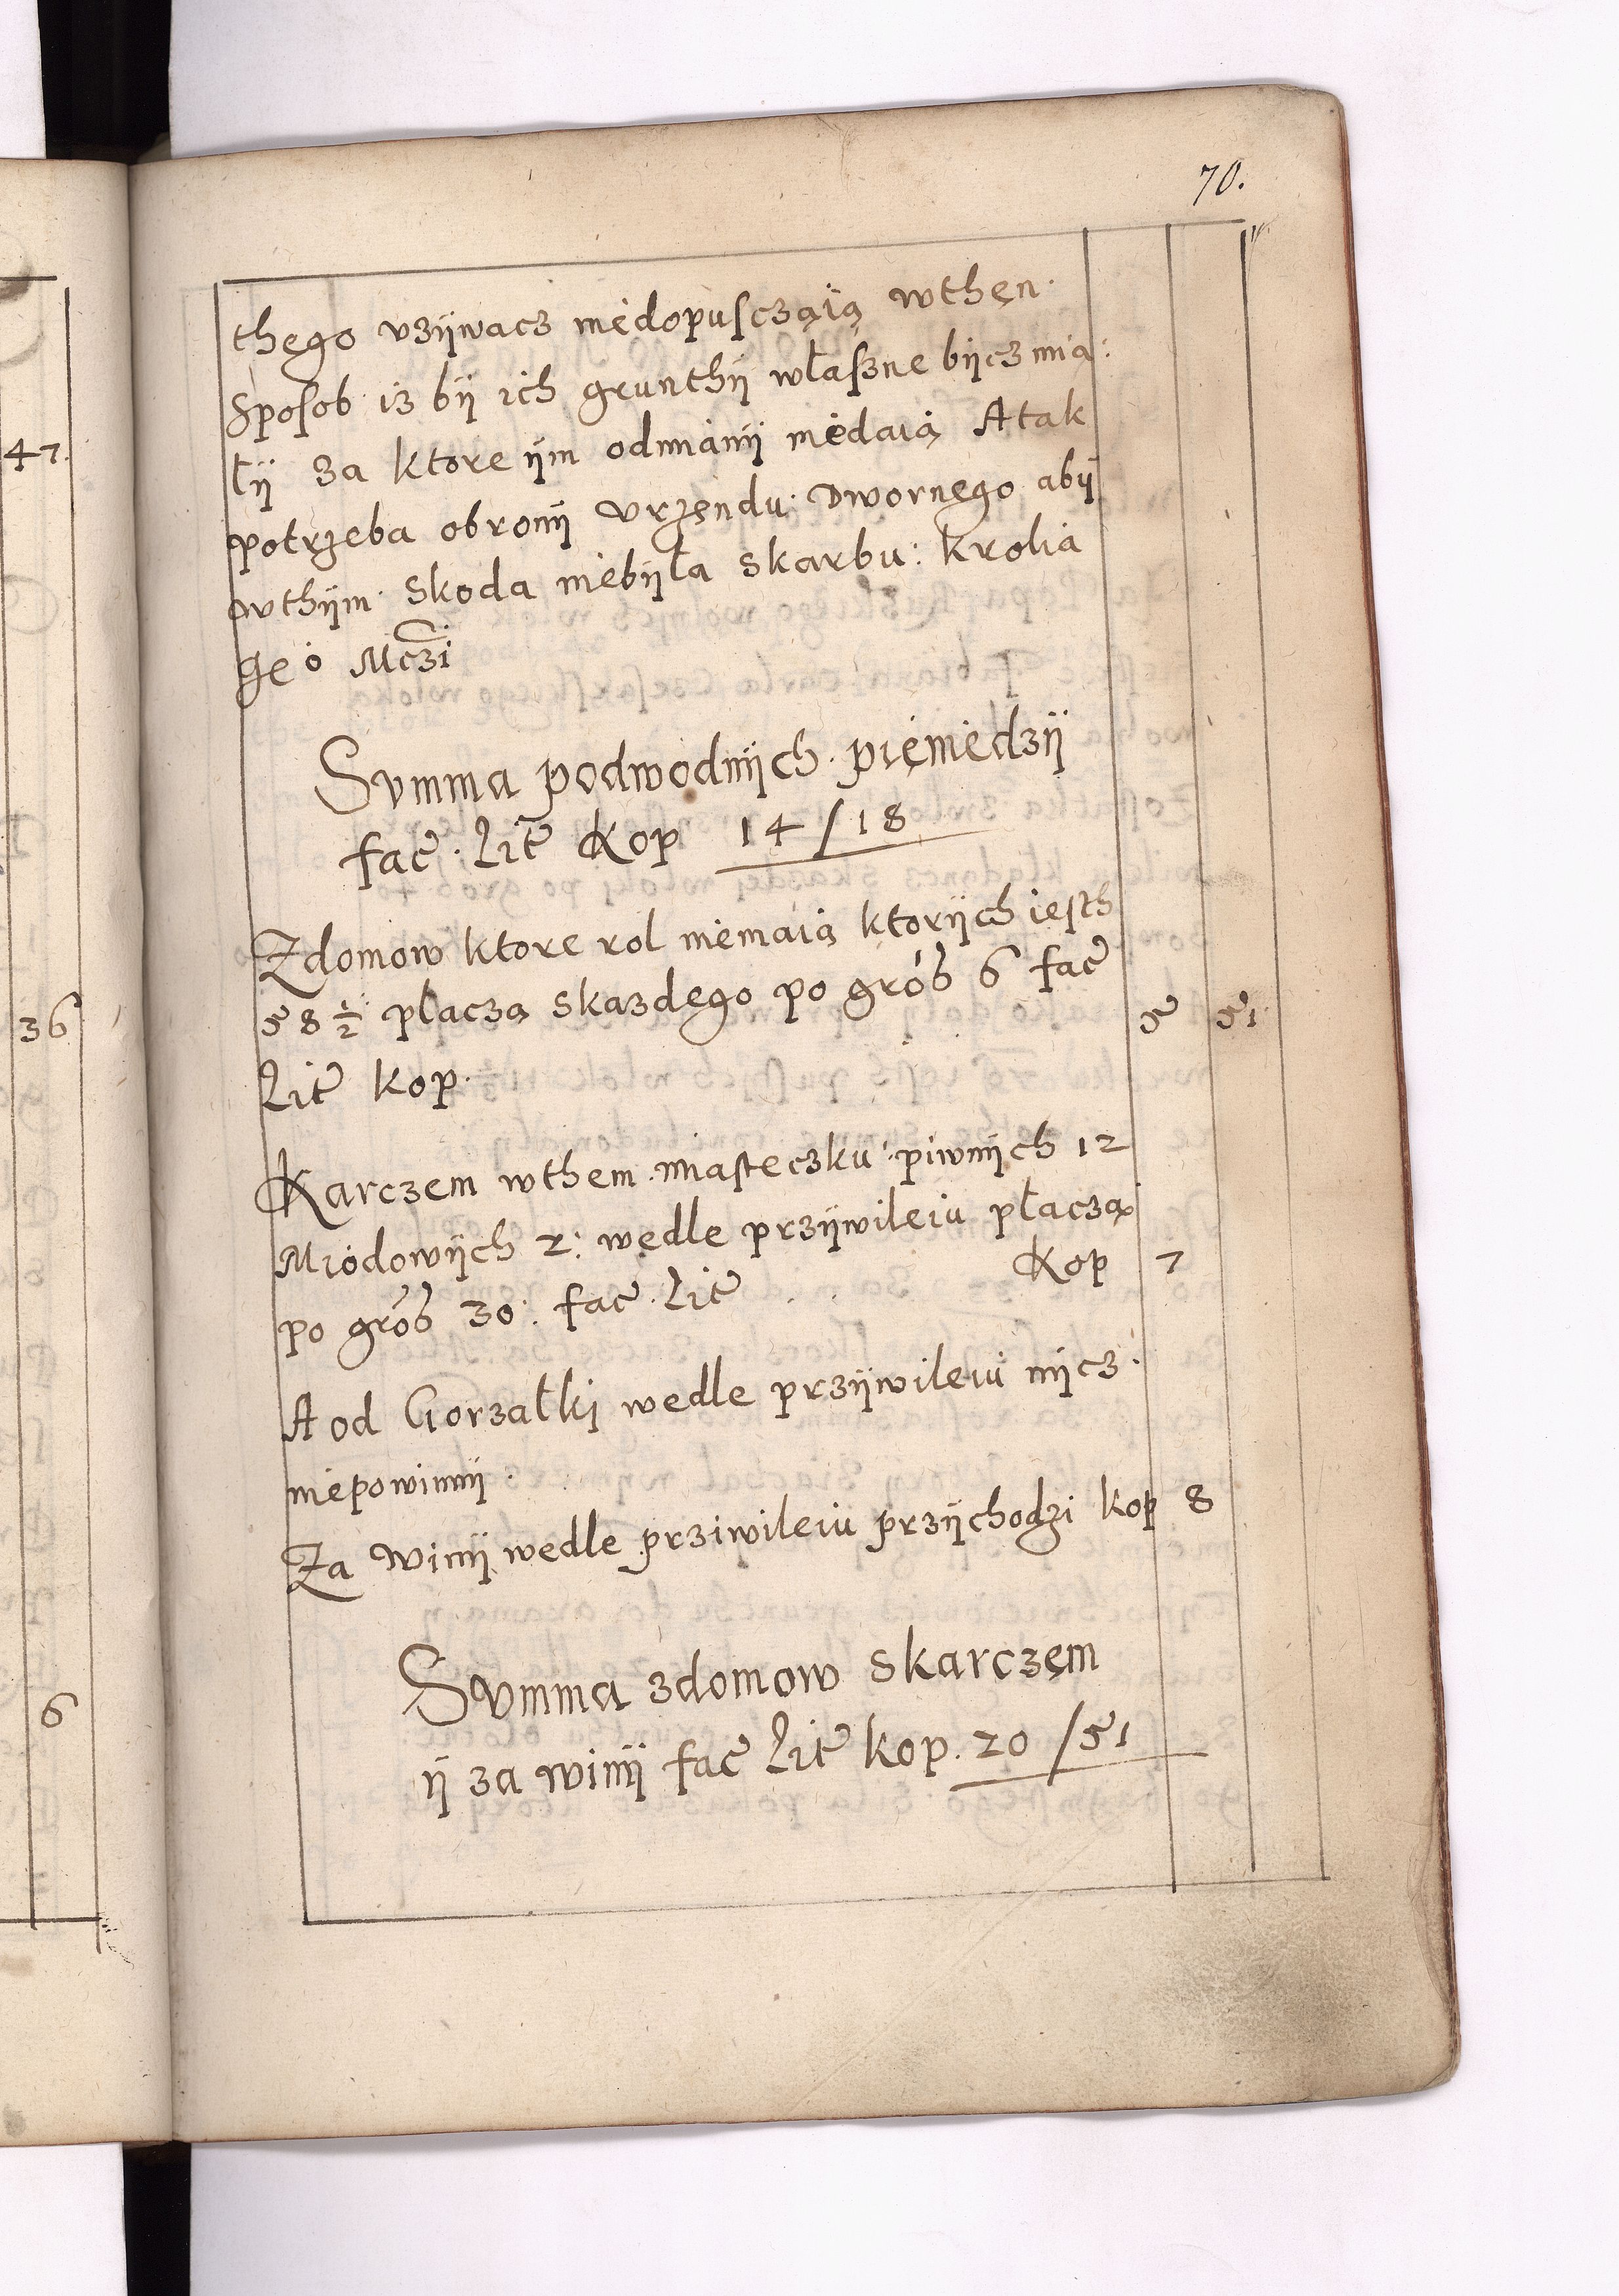 70.
thego vzÿwacz niedopusczaią wthen
Sposob iz bÿ ich grunthÿ własne bÿcz mia:
łÿ za ktore ÿm odmianÿ niedaią A tak
potrzeba obronÿ vrzendu Dwornego abÿ
wthÿm skoda niebÿła skarbu: krolia
geo Mczi
Svmma podwodnÿch pieniedzÿ
fac Lit kop 14/18
Zdomow ktore rol niemaią ktorÿch iesth
58 ½ płaczą skazdego po grosz 6 fac 5 51
Lit kop.
Karczem wthem miasteczku piwnÿch 12
Miodowÿch 2: wedle przÿwileiu płaczą
po grosz 30: fac Lit Kop 7
A od Gorzałki wedle przÿwileiu nÿcz
niepowinnÿ.
Za winÿ wedle prziwileiu przÿchodzi kop 8
Svmma zdomow skarczem
ÿ za winÿ fac Lit kop. 20 /51
47.
36
6